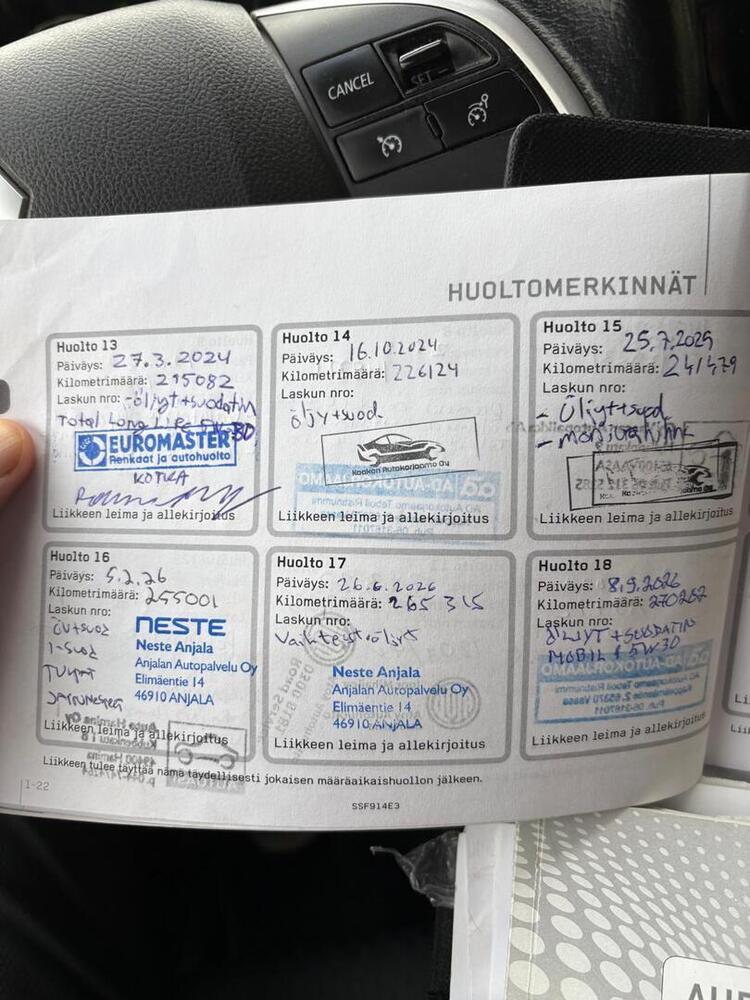 CANCEL
SET
HUOLTOMERKINNÄT
Huolto 13
Päiväys: 27.3.2024
Kilometrimäärä: 215082
Laskun nro: -öljyt+suodatin
Total Long Life 5W30
EUROMASTER
Renkaat ja autohuolto
KOTKA
Liikkeen leima ja allekirjoitus
Huolto 14
Päiväys: 16.10.2024
Kilometrimäärä: 226124
Laskun nro:
öljy+suod.
Kaakon Autokorjaamo Oy
Liikkeen leima ja allekirjoitus
Huolto 15
Päiväys: 25.7.2025
Kilometrimäärä: 241479
Laskun nro:
- Öljyt+suod
Liikkeen leima ja allekirjoitus
Huolto 16
Päiväys: 5.2.26
Kilometrimäärä: 255001
Laskun nro:
ÖV+SUOZ
I-SUOZ
TULPAT
NESTE
Neste Anjala
Anjalan Autopalvelu Oy
Elimäentie 14
46910 ANJALA
Liikkeen leima ja allekirjoitus
Huolto 17
Päiväys: 26.6.2026
Kilometrimäärä: 265 315
Laskun nro:
Vaihteistoöljyt
Neste Anjala
Anjalan Autopalvelu Oy
Elimäentie 14
46910 ANJALA
Liikkeen leima ja allekirjoitus
Huolto 18
Päiväys: 8.9.2026
Kilometrimäärä: 270282
Laskun nro:
ÖLJYT + SUODATIN
MOBIL 1 5W30
Liikkeen leima ja allekirjoitus
Liikkeen tulee täyttää nämä täydellisesti jokaisen määräaikaishuollon jälkeen.
1-22
SSF914E3